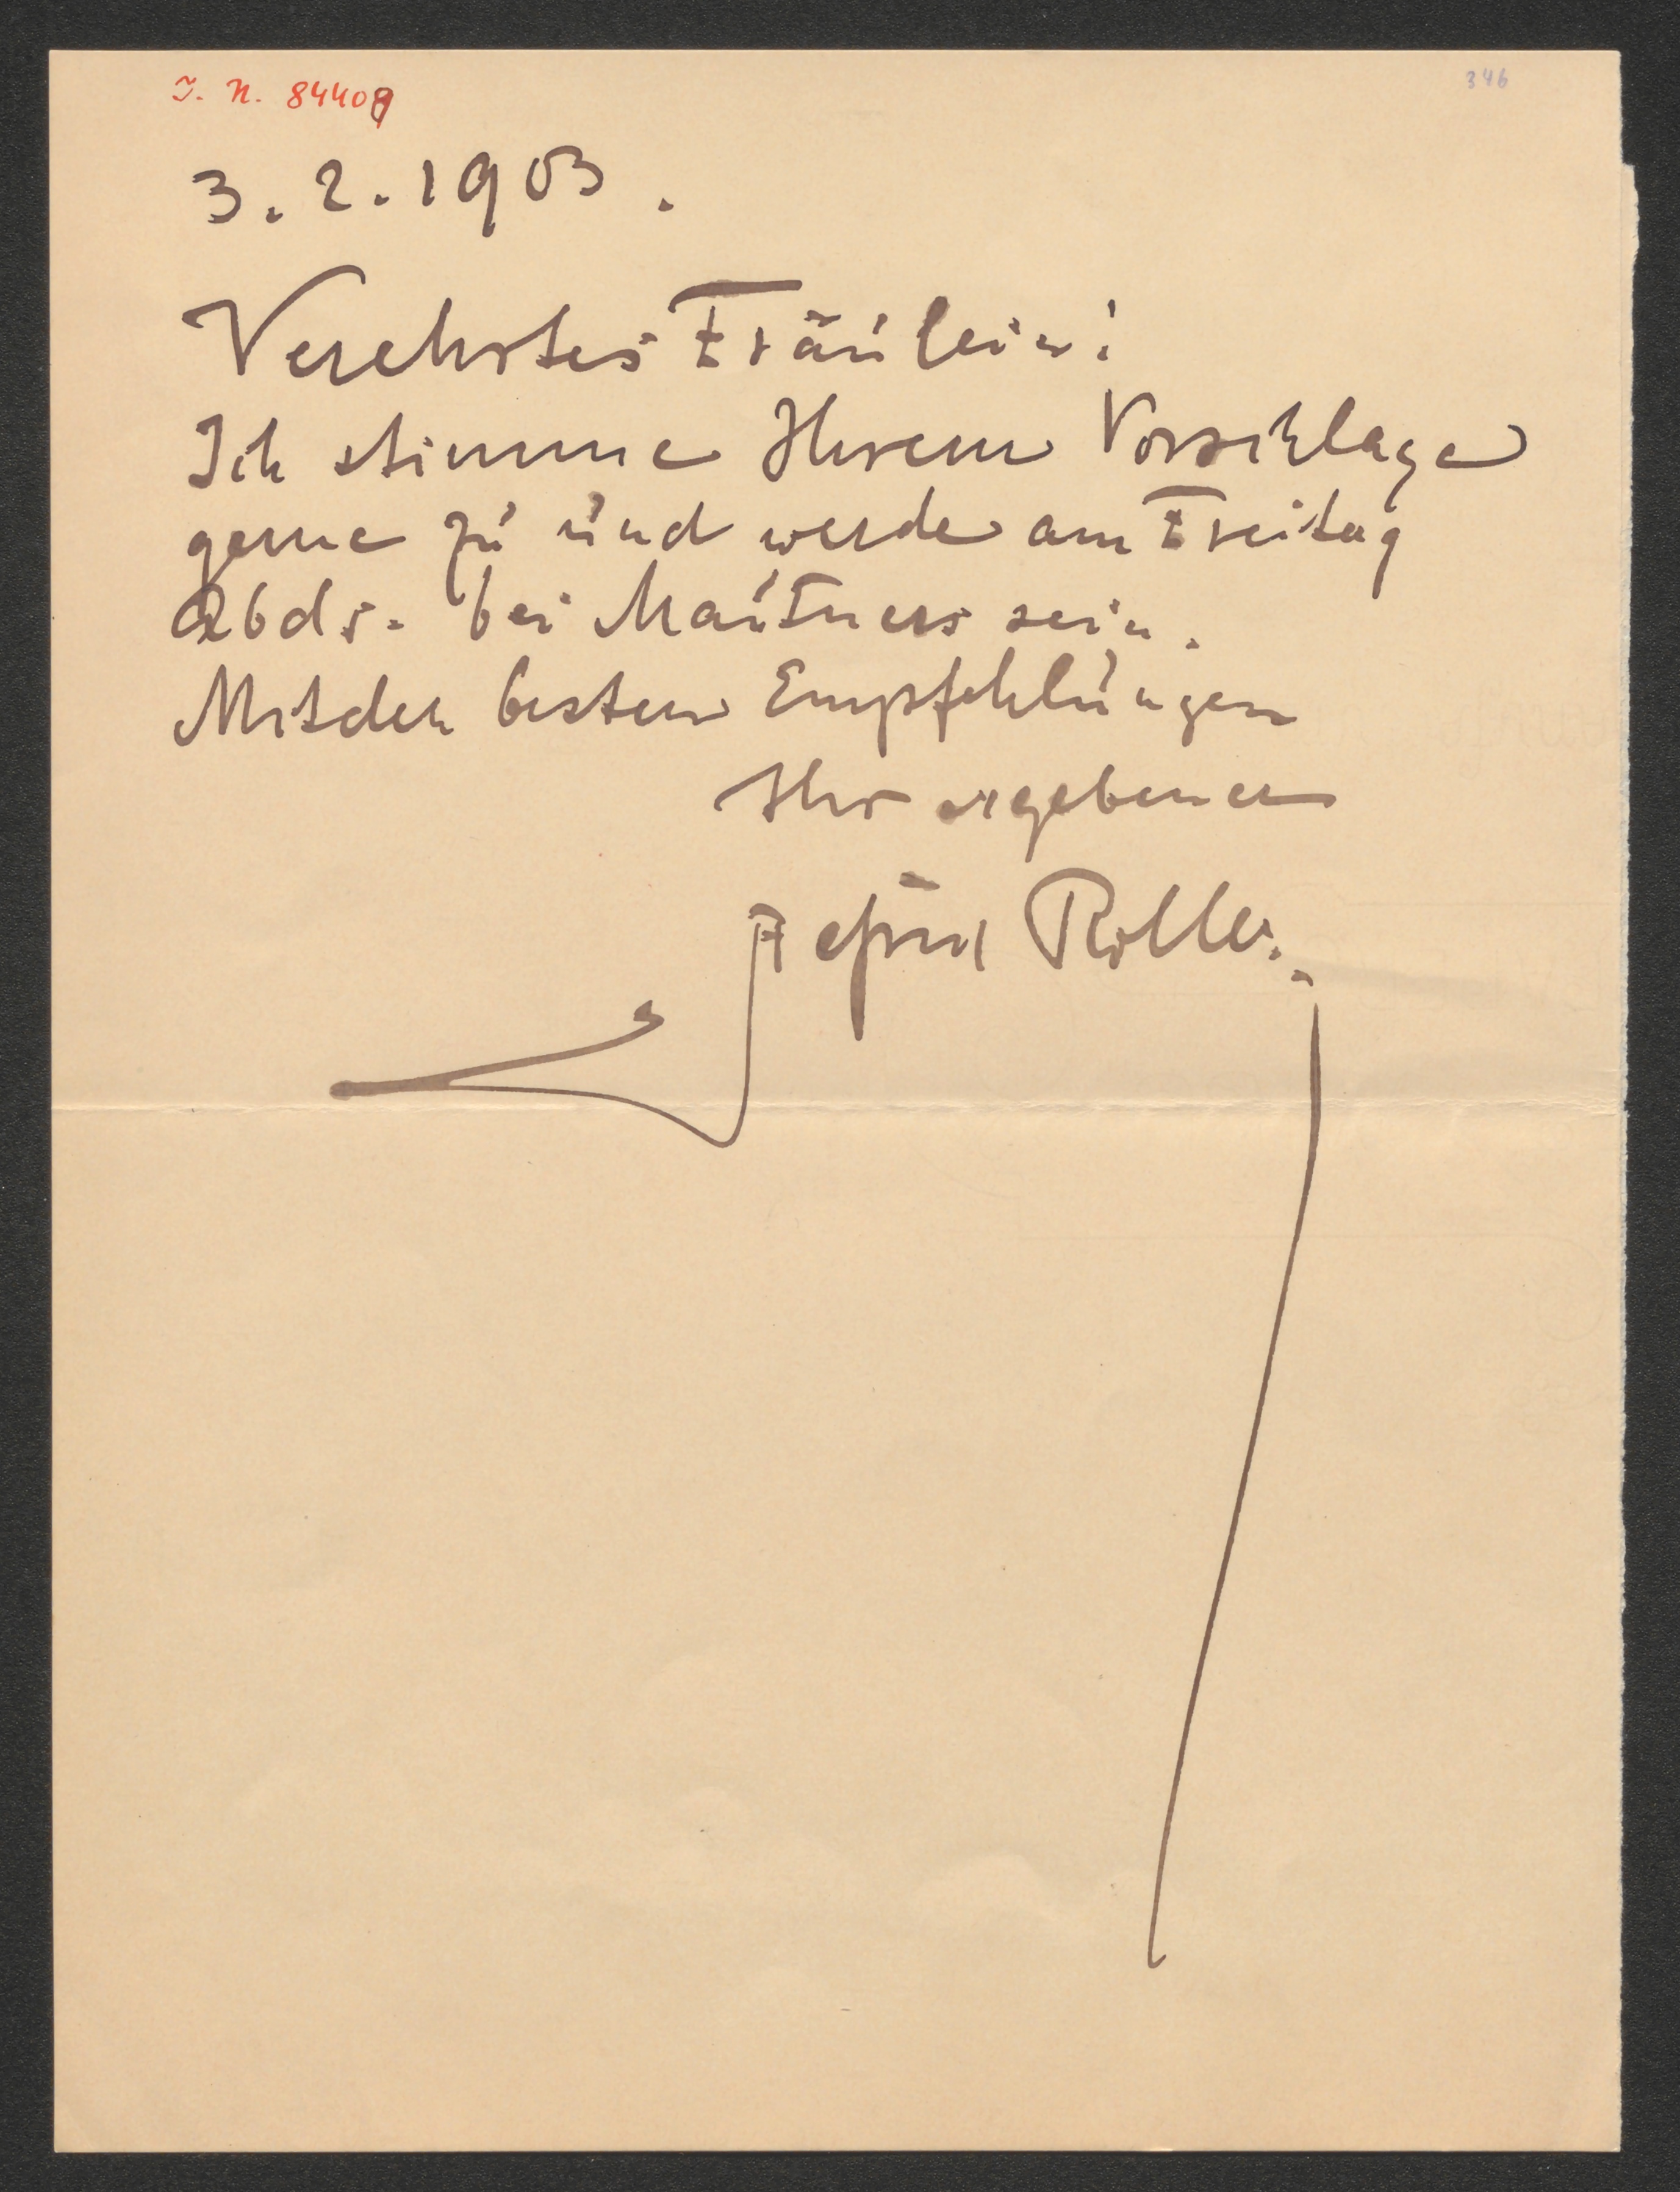 I. N. 84409
346
3. 2. 1903.
Verehrtes Fräulein!
Ich stimme Ihrem Vorschlage
gerne zu und werde am Freitag
Abds. bei Mautners sein.
Mit den besten Empfehlungen
Ihr ergebener
Alfred Roller.